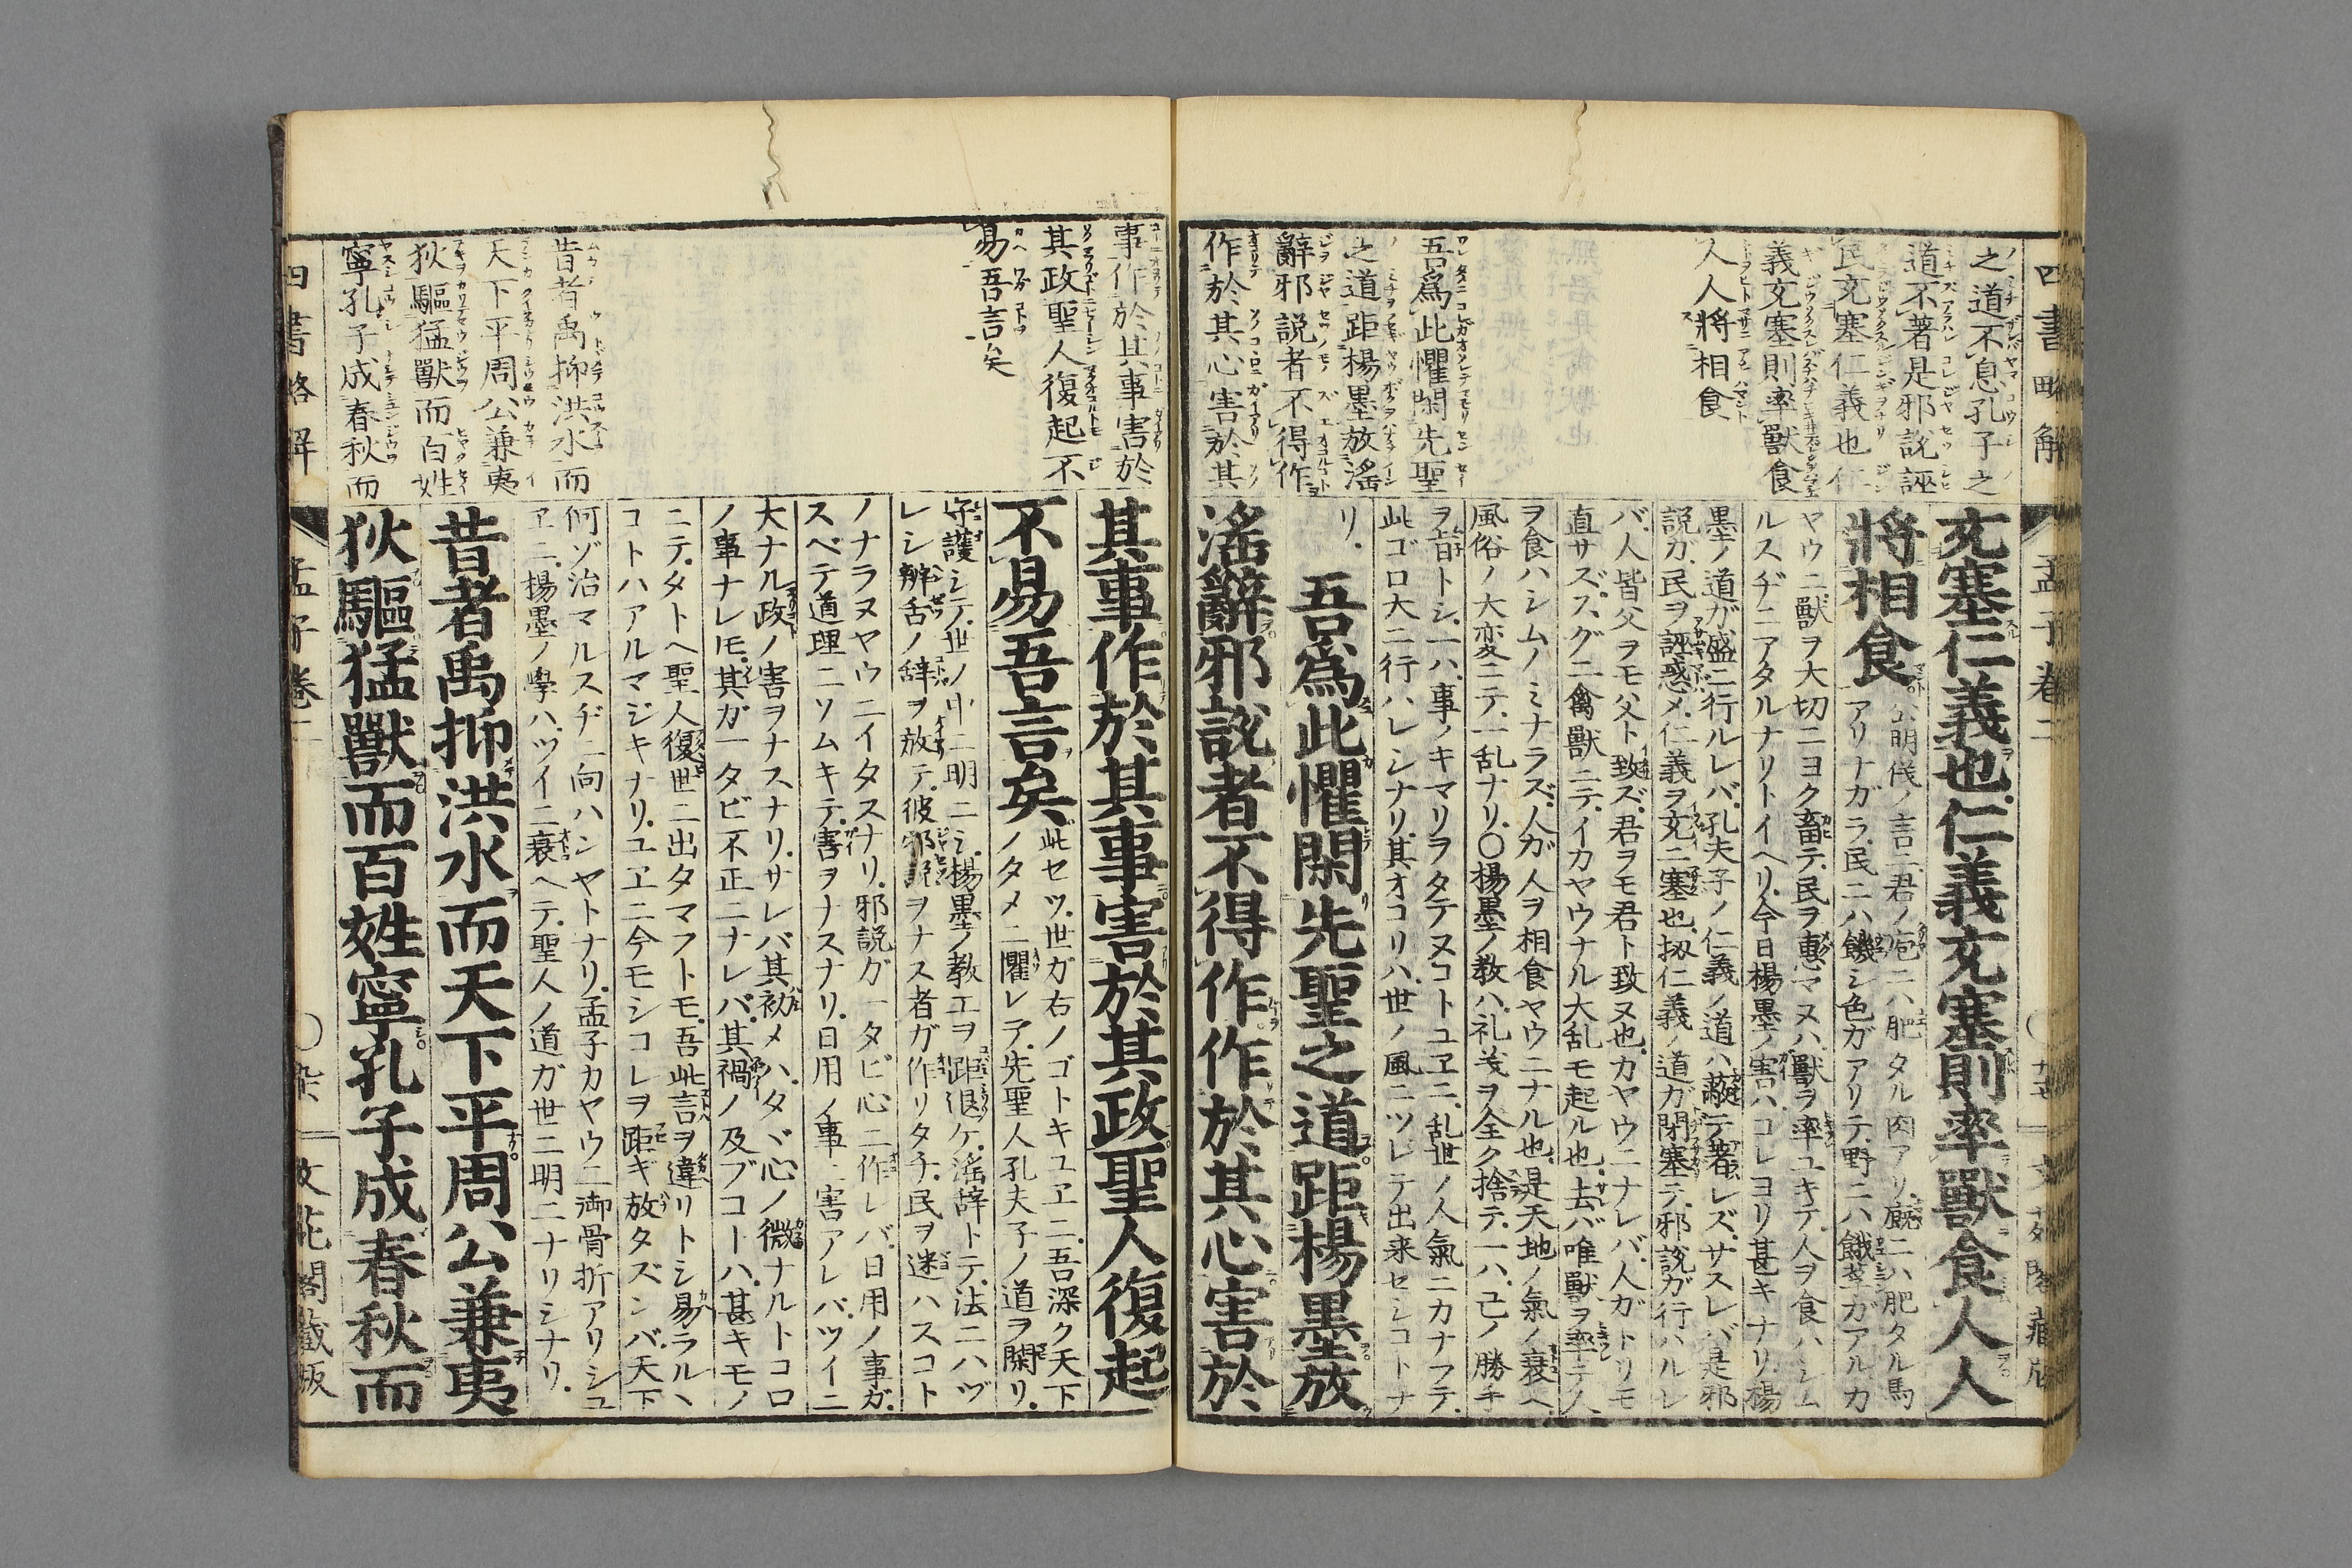 四書略解
孟子巻二
之道不息孔子之
道不著是邪説誣
民充塞仁義也仁
義充塞則率獸食
人人將相食
吾為此懼閑先聖
之道距楊墨放淫
辭邪説者不得作
作於其心害於其
充塞仁義也仁義充塞則率獸食人人
將相食
公明儀ノ言ニ君ノ庖ニハ肥タル肉アリ廐ニハ肥タル馬
アリナガラ民ニハ饑シ色ガアリテ野ニハ餓莩ガアルカ
ヤウニ獣ヲ大切ニヨク畜テ民ヲ恵マヌハ獣ヲ率ユキテ人ヲ食ハシム
ルスヂニアタルナリトイヘリ今日楊墨ノ害ハコレヨリ甚キナリ楊
墨ノ道ガ盛ニ行ルレバ孔夫子ノ仁義ノ道ハ蔽テ著レズサスレバ是邪
説ガ民ヲ誣惑メ仁義ヲ充ニ塞也扨仁義ノ道ガ閉塞テ邪説ガ行ハルレ
バ人皆父ヲモ父ト致ズ君ヲモ君ト致ヌ也カヤウニナレバ人ガトリモ
直サズスグニ禽獣ニテイカヤウナル大乱モ起ル也去バ唯獣ヲ率テ人
ヲ食ハシムノミナラズ人ガ人ヲ相食ヤウニナル也是天地ノ氣ノ衰ヘ
風俗ノ大変ニテ一乱ナリ〇楊墨ノ教ハ礼義ヲ全ク捨テ一ハ己ノ勝手
ヲ旨トシ一ハ事ノキマリヲタテヌコトユヱニ乱世ノ人氣ニカナフテ
此ゴロ大ニ行ハレシナリ其オコリハ世ノ風ニツレテ出来セシコトナ
リ
吾為此懼閑先聖之道距楊墨放
淫辭邪説者不得作作於其心害於
事作於其事害於
其政聖人復起不
易吾言矣
昔者禹抑洪水而
天下平周公兼夷
狄驅猛獸而百姓
寧孔子成春秋而
其事作於其事害於其政聖人復起
不易吾言矣
此セツ世ガ右ノゴトキユヱニ吾深ク天下
ノタメニ懼レテ先聖人孔夫子ノ道ヲ閑リ
守護シテ世ノ中ニ明ニシ楊墨ノ教エヲ距退ケ淫辞トテ法ニハヅ
レシ辨舌ノ辞ヲ放テ彼邪説ヲナス者ガ作リタチ民ヲ迷ハスコト
ノナラヌヤウニイタスナリ邪説ガ一タビ心ニ作レバ日用ノ事ガ
スベテ道理ニソムキテ害ヲナスナリ日用ノ事ニ害アレバツイニ
大ナル政ノ害ヲナスナリサレバ其初メハタヾ心ノ微ナルトコロ
ノ事ナレモ其ガ一タビ不正ニナレバ其禍ノ及ブコトハ甚キモノ
ニテタトヘ聖人復世ニ出タマフトモ吾此言ヲ違リトシ易ラルヽ
コトハアルマジキナリユヱニ今モシコレヲ距ギ放タズンバ天下
何ゾ治マルスヂニ向ハンヤトナリ孟子カヤウニ御骨折アリシユ
ヱニ楊墨ノ學ハツイニ衰ヘテ聖人ノ道ガ世ニ明ニナリシナリ
昔者禹抑洪水而天下平周公兼夷
狄驅猛獸而百姓寧孔子成春秋而
四書略解
孟子巻二
文花閣蔵版